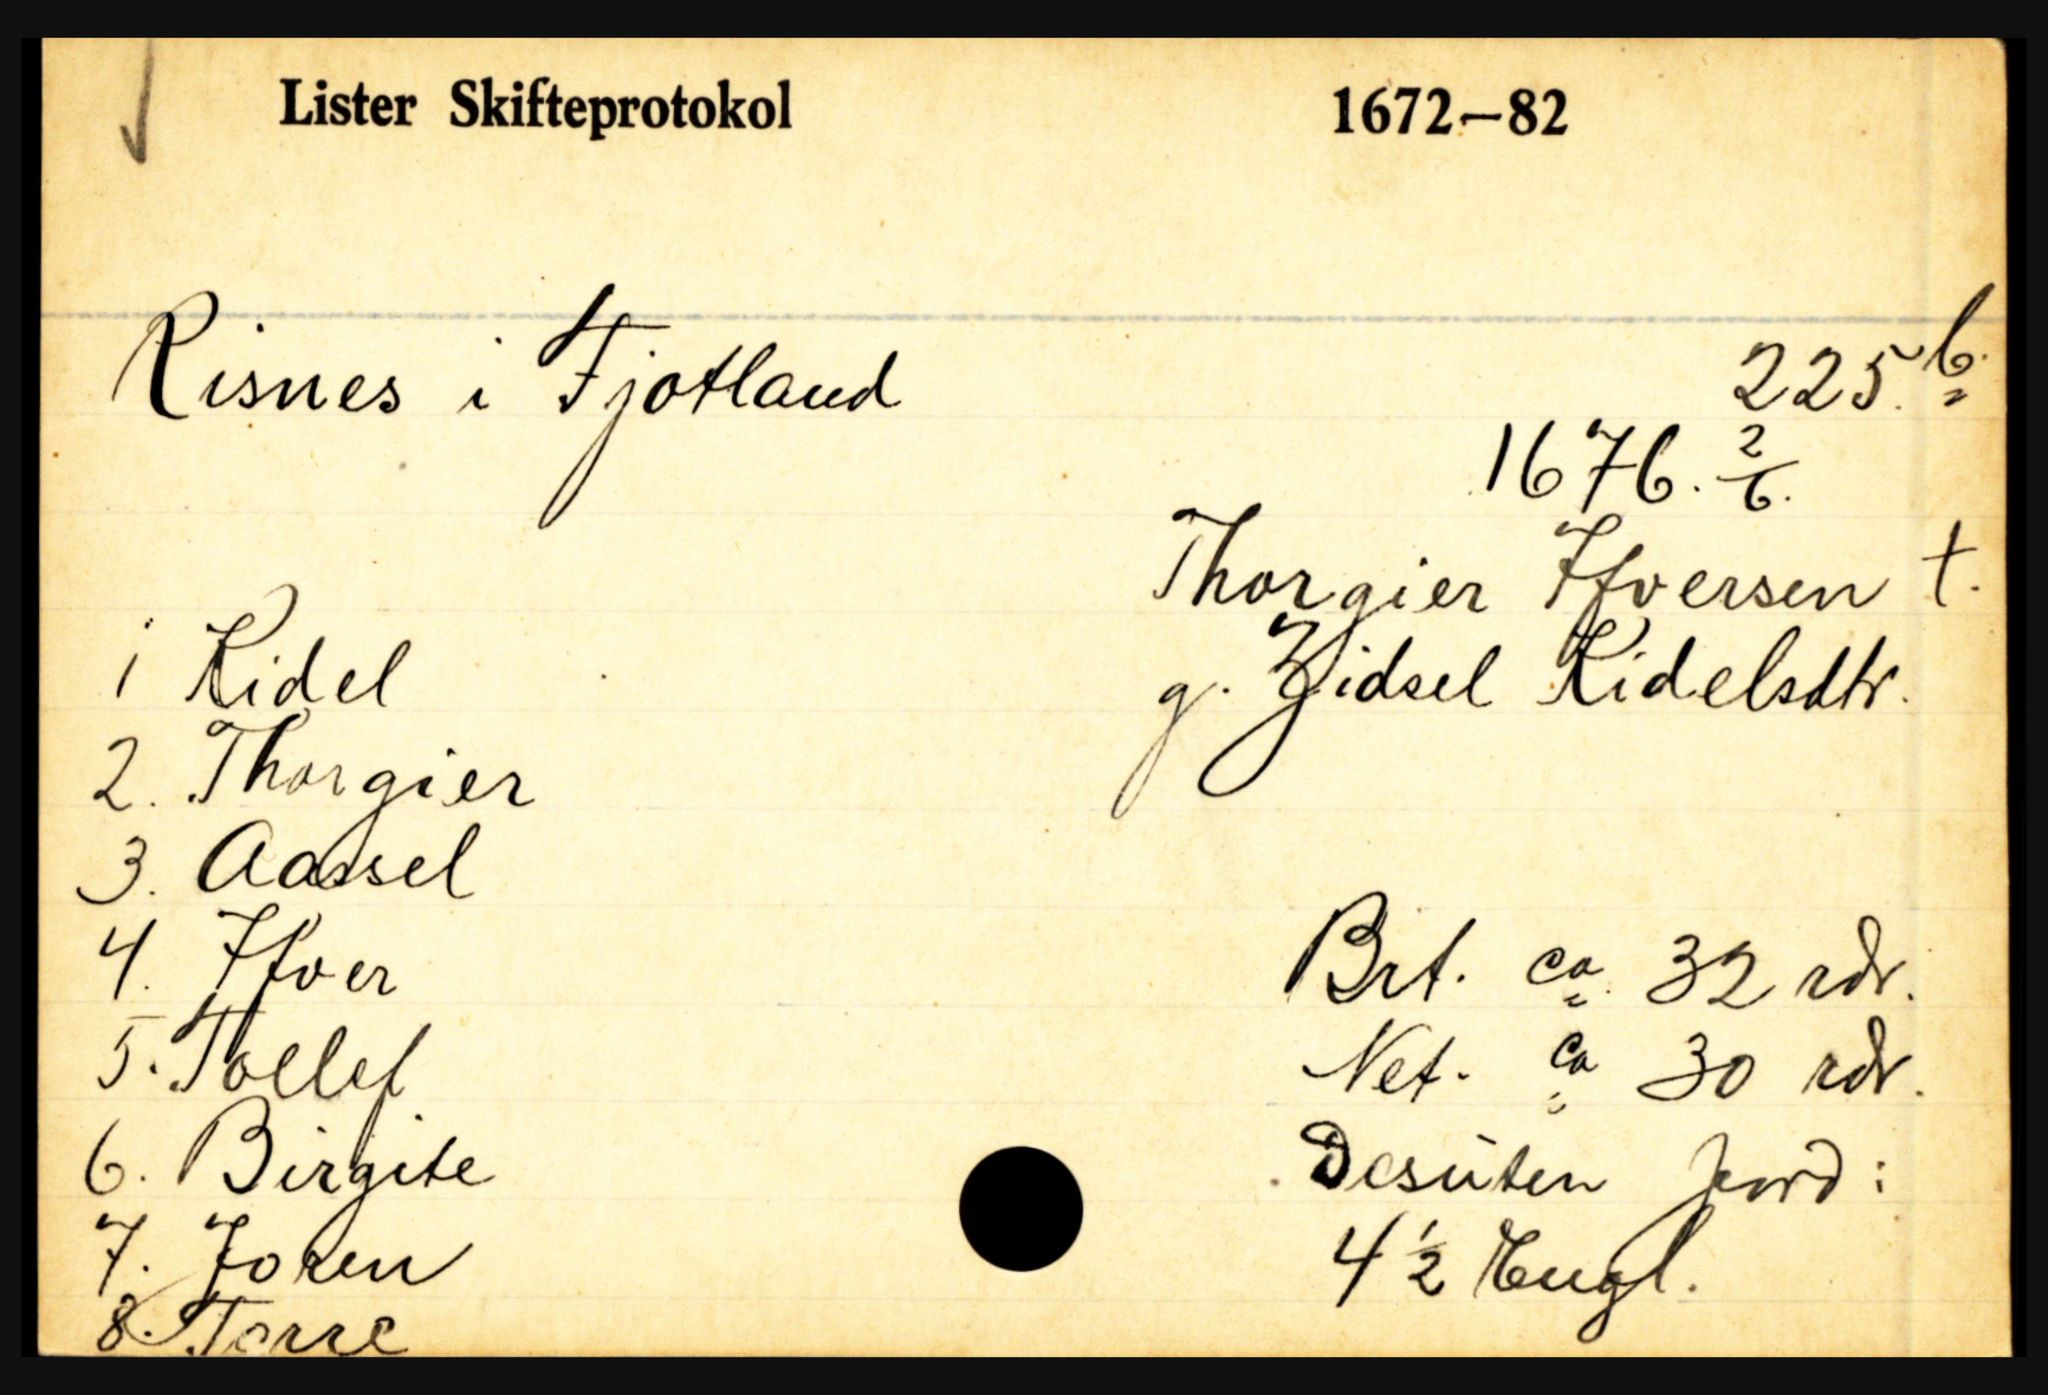 Lister Skifteprotokol 1672–82
Risnes i Fjotland 225.b.
1676. 2/6.
Thorgier Ifversen †.
g. Zidsel Kidelsdtr.
1 Kidel
2. Thorgier
3. Aassel
4. Ifver
5. Tollef
6. Birgite
7. Joren
8. Torre
Brt. ca. 32 rdr.
Net. ca 30 rdr.
Desuten jord:
4 1/2 Eugl.